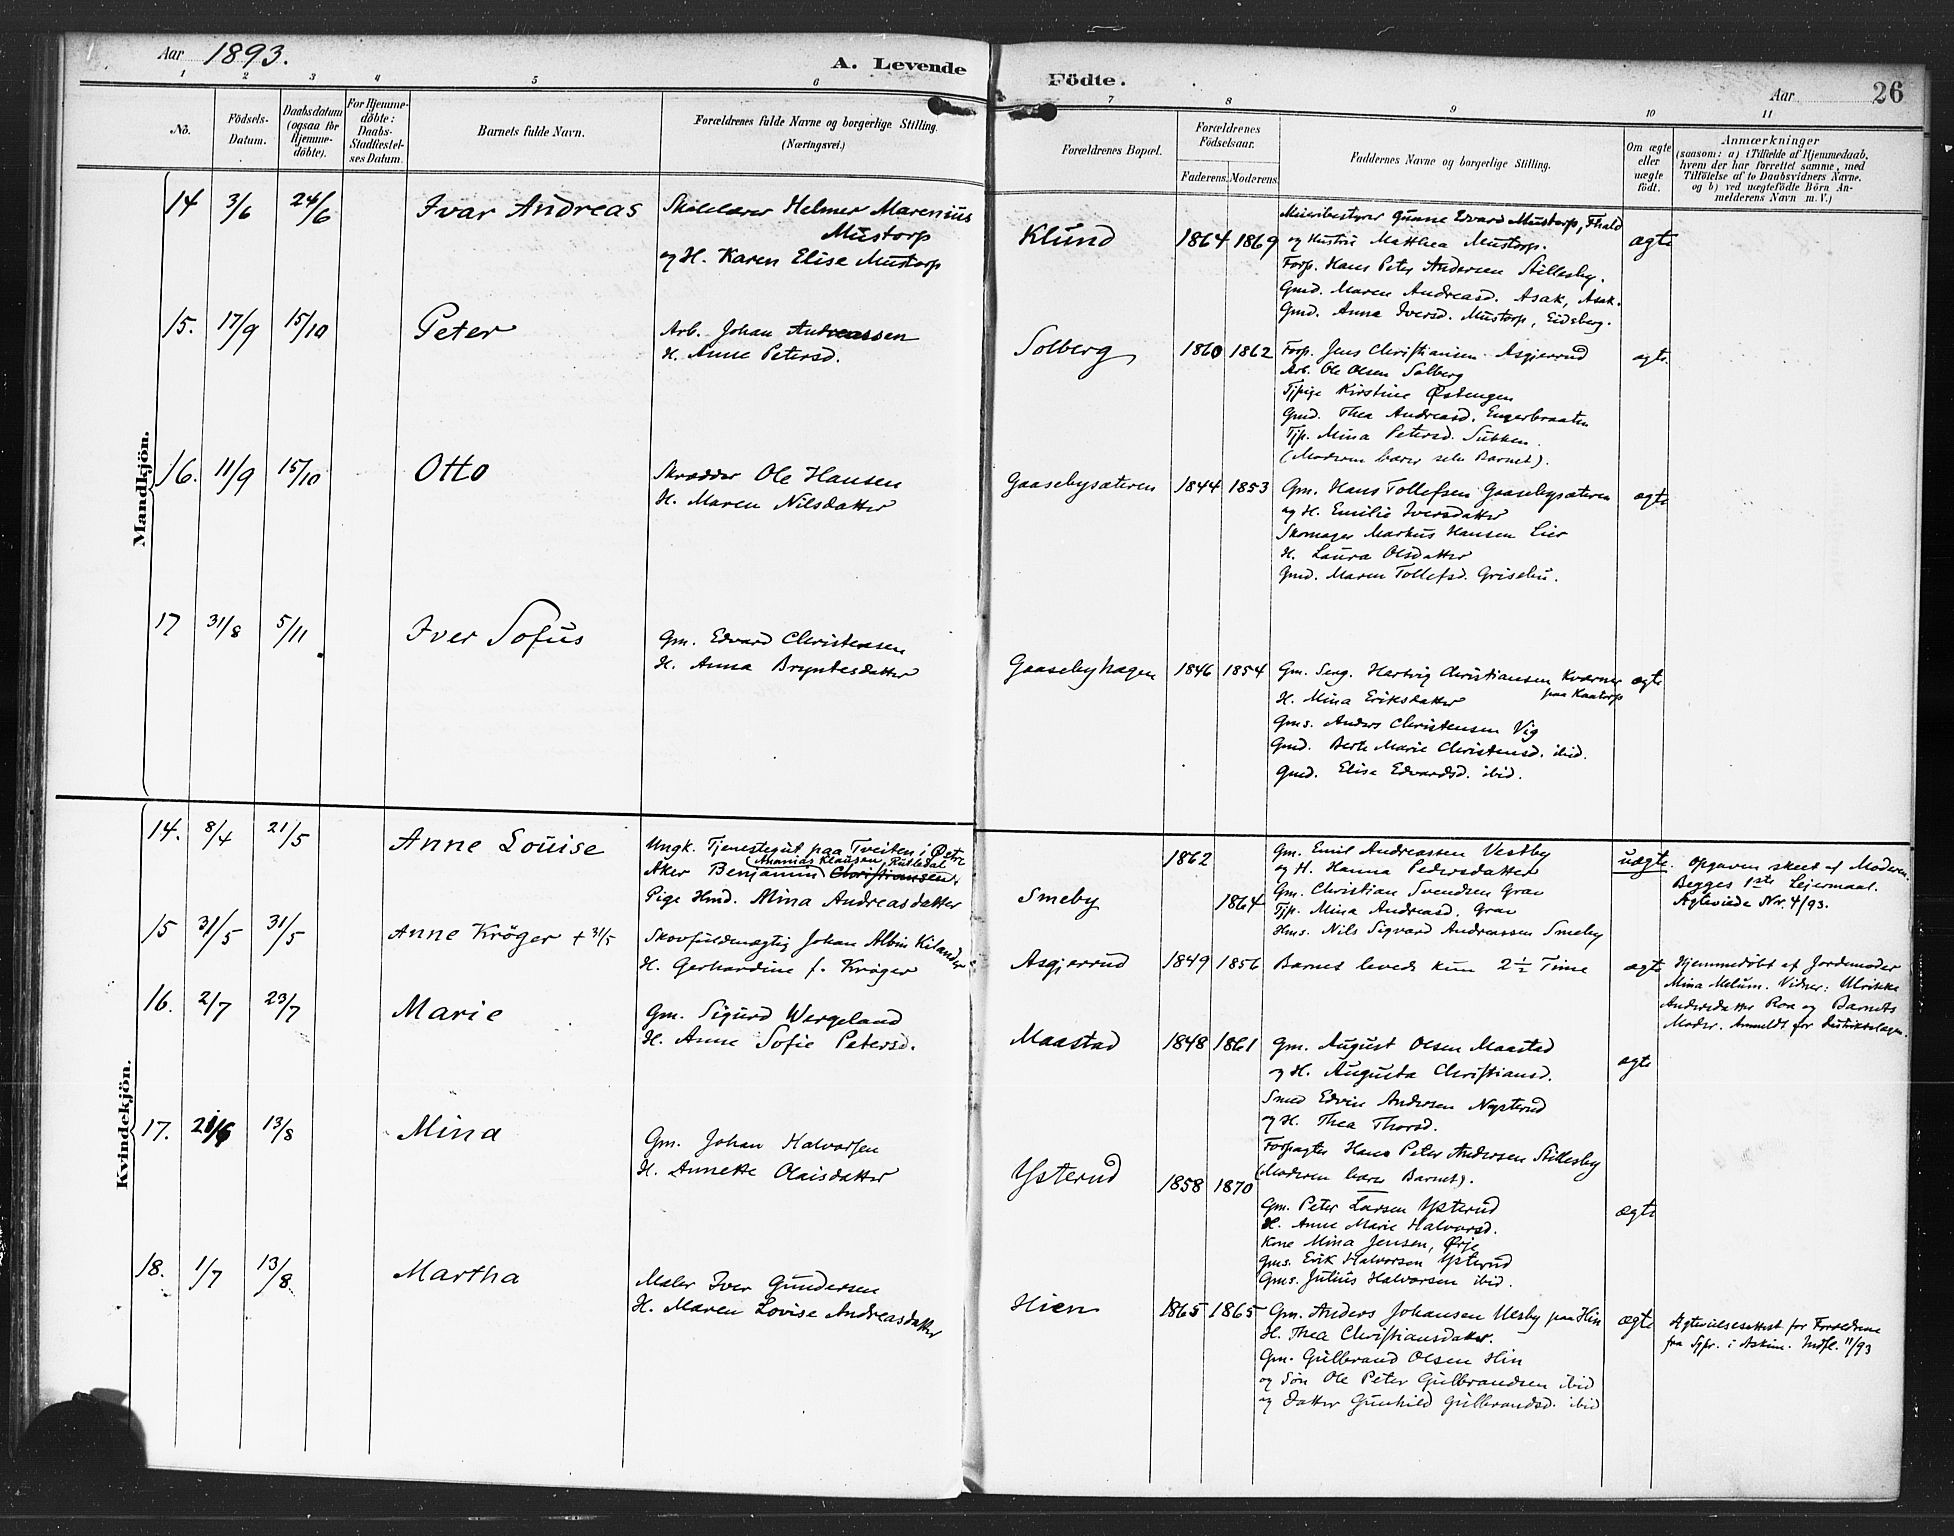 Aar 1893.
A. Levende Födte.
Aar 26
1 2 3 4 5 6 7 8 9 10 11
No.
Födsels-Datum.
Daabsdatum (ogsaa för Hjemme-döbte).
For Hjemme-döbte: Daabs-Stadfæstel-ses Datum.
Barnets fulde Navn.
Forældrenes fulde Navne og borgerlige Stilling. (Næringsvei.)
Forældrenes Bopæl.
Forældrenes Födselsaar.
Faderens. Moderens.
Faddernes Navne og borgerlige Stilling.
Om ægte eller uægte födt.
Anmærkninger
(saasom: a) i Tilfælde af Hjemmedaab,
hvem der har forrettet samme, med
Tilföielse af to Daabsvidners Navne,
og b) ved uægtefödte Börn An-
melderens Navn m. V.)
Mandkjön.
14 3/6 24/6 Ivar Andreas
Skolelærer Helmer Marenius
Mustorp
og H. Karen Elise Mustorp
Klund 1864 1869
Meieribestyrer Gunne Edvard Mustorp, Fhald
og Hustru Matthea Mustorp.
Forp. Hans Peter Andersen Stillesby.
Gmd. Maren Andreasd. Asak, Asak.
Gmd. Anna Iversd. Mustorp, Eidsberg.
ægte
15. 17/9 15/10 Peter
Arb. Johan Andreassen
H. Anne Petersd.
Solberg 1860 1862
Forp. Jens Christiansen Asgjerrud
Arb. Ole Olsen Solberg
Tjpige Kirstine Østengen
Gmd. Thea Andreasd. Engerbraaten
Tjp. Mina Petersd. Sukken.
(Moderen bærer selv Barnet).
ægte
16. 11/9 15/10 Otto
Skrædder Ole Hansen
H. Maren Nilsdatter
Gaasebysæteren 1844 1853
Gm. Hans Tollefsen Gaasebysæteren
og H. Emilie Iversdatter
Skomager Markus Hansen Lier
H. Laura Olsdatter
Gmd. Maren Tollefsd. Grisebu.
ægte
17 31/8 5/11 Iver Sofus
Gm. Edvard Christensen
H. Anna Bryntesdatter
Gaasebyhagen 1846 1854
Gm. Serg. Hartvig Christiansen Kværner
paa Kaatorp
H. Mina Eriksdatter
Gms. Anders Christensen Vig
Gmd. Berte Marie Christensd. ibid.
Gmd. Elise Edvardsd. ibid.
ægte
Kvindekjön.
14. 8/4 21/5 Anne Louise
Ungk. Tjenestegut paa Tveiten i Østre
(Ananias Klausen Rutledal
Aker Benjamin Christiansen
Pige Hmd. Mina Andreasdatter
Smeby 1862 1864
Gm. Emil Andreassen Vestby
og H. Hanna Pedersdatter
Gm. Christian Svendsen Grav
Tjp. Mina Andreasd. Grav
Hms. Nils Sigvard Andreassen Smeby
uægte.
Opgaven skeet af Moderen.
Begges 1ste Leiermaal.
Ægteviede Nr. 4/93.
15 31/5 31/5 Anne Krøger + 31/5
Skovfuldmægtig Johan Albin Kilander
H. Gerhardine f. Krøger
Asgjerrud 1849 1856
Barnet levede kun 2½ Time
ægte
Hjemmedøbt af Jordemoder
Mina Melum. Vidner: Ulrikke
Andersdatter Roa og Barnets
Moder. Anmeldt for Distriktslægen.
16. 2/7 23/7 Marie
Gm. Sigurd Wergeland
H. Anne Sofie Petersd.
Maastad 1848 1861
Gm. August Olsen Maastad
og H. Augusta Christiansd.
Smed Edvin Andersen Nysterud
og H. Thea Thorsd.
Forpagter Hans Peter Andersen Stillesby
(Moderen bærer Barnet).
ægte
17. 21/6 13/8 Mina
Gm. Johan Halvorsen
H. Annette Olaisdatter
Ysterud 1858 1870
Gm. Peter Larsen Ysterud
H. Anne Marie Halvorsd.
Kone Mina Jensen, Ørje
Gms. Erik Halvorsen Ysterud
Gms. Julius Halvorsen ibid.
ægte
18. 1/7 13/8 Martha
Maler Iver Gundersen
H. Maren Lovise Andreasdatter
Hien 1865 1865
Gm. Anders Johansen Ulsby paa Hin
H. Thea Christiansdatter.
Gm. Gulbrand Olsen Hin
og Søn Ole Peter Gulbrandsen ibid
og Datter Gunhild Gulbrandsd. ibid
ægte
Ægtevielsesattest for Forældrene
fra Spr. i Askim. Indfl. 11/93